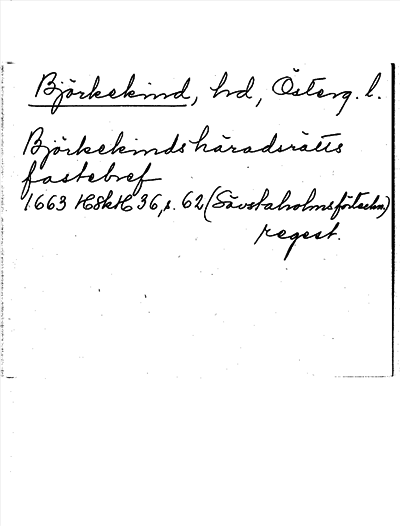 Björkekind, hd, Österg. l.
Björkekinds häradsrätts
fastebref
1663 HSkH 36, s. 62 (Sävstaholmsförteckn.)
regest.